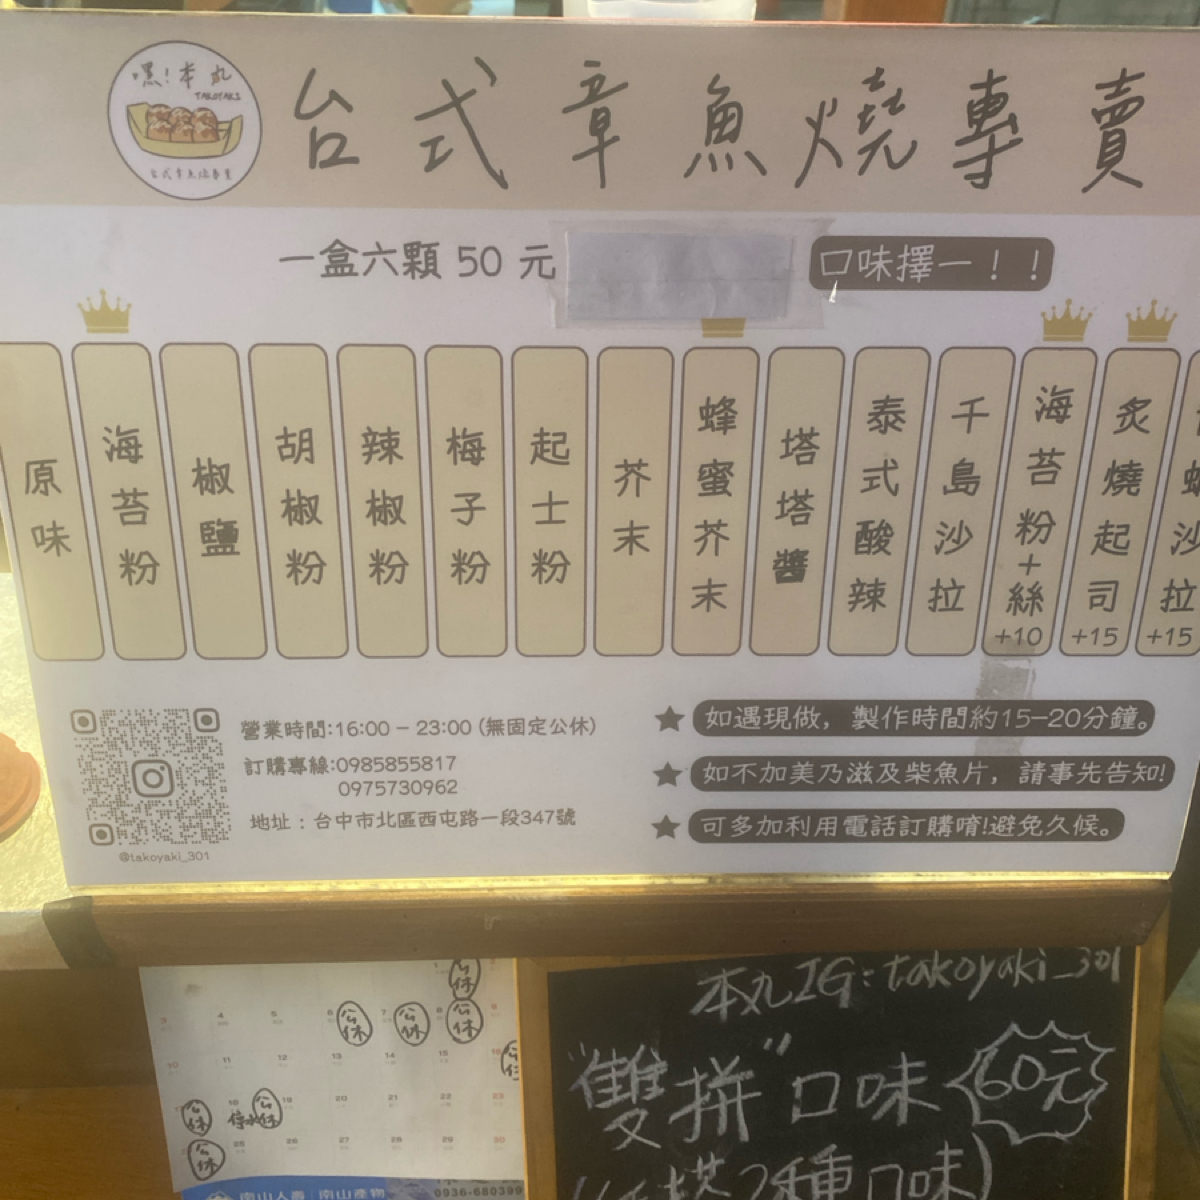 嘿!本丸
TAKOYAKI
台式章魚燒專賣
台式章魚燒專賣
一盒六顆 50 元
口味擇一！！
原味
海苔粉
椒鹽
胡椒粉
辣椒粉
梅子粉
起士粉
芥末
蜂蜜芥末
塔塔醬
泰式酸辣
千島沙拉
海苔粉+絲
+10
炙燒起司
+15
沙拉
+15
@takoyaki_301
營業時間:16:00 – 23:00 (無固定公休)
訂購專線:0985855817
0975730962
地址：台中市北區西屯路一段347號
★ 如遇現做，製作時間約15–20分鐘。
★ 如不加美乃滋及柴魚片，請事先告知!
★ 可多加利用電話訂購唷!避免久候。
公休
3 4 5 6 公休 7 公休 8 公休 9
10 11 12 13 14 15 16
公休 18 停水 公休 19 20 21 22 23
公休 25 26 27 28 29 30
南山人壽 南山產物
0936-680399
本丸IG:takoyaki_301
"雙拼"口味 60元
2種口味)